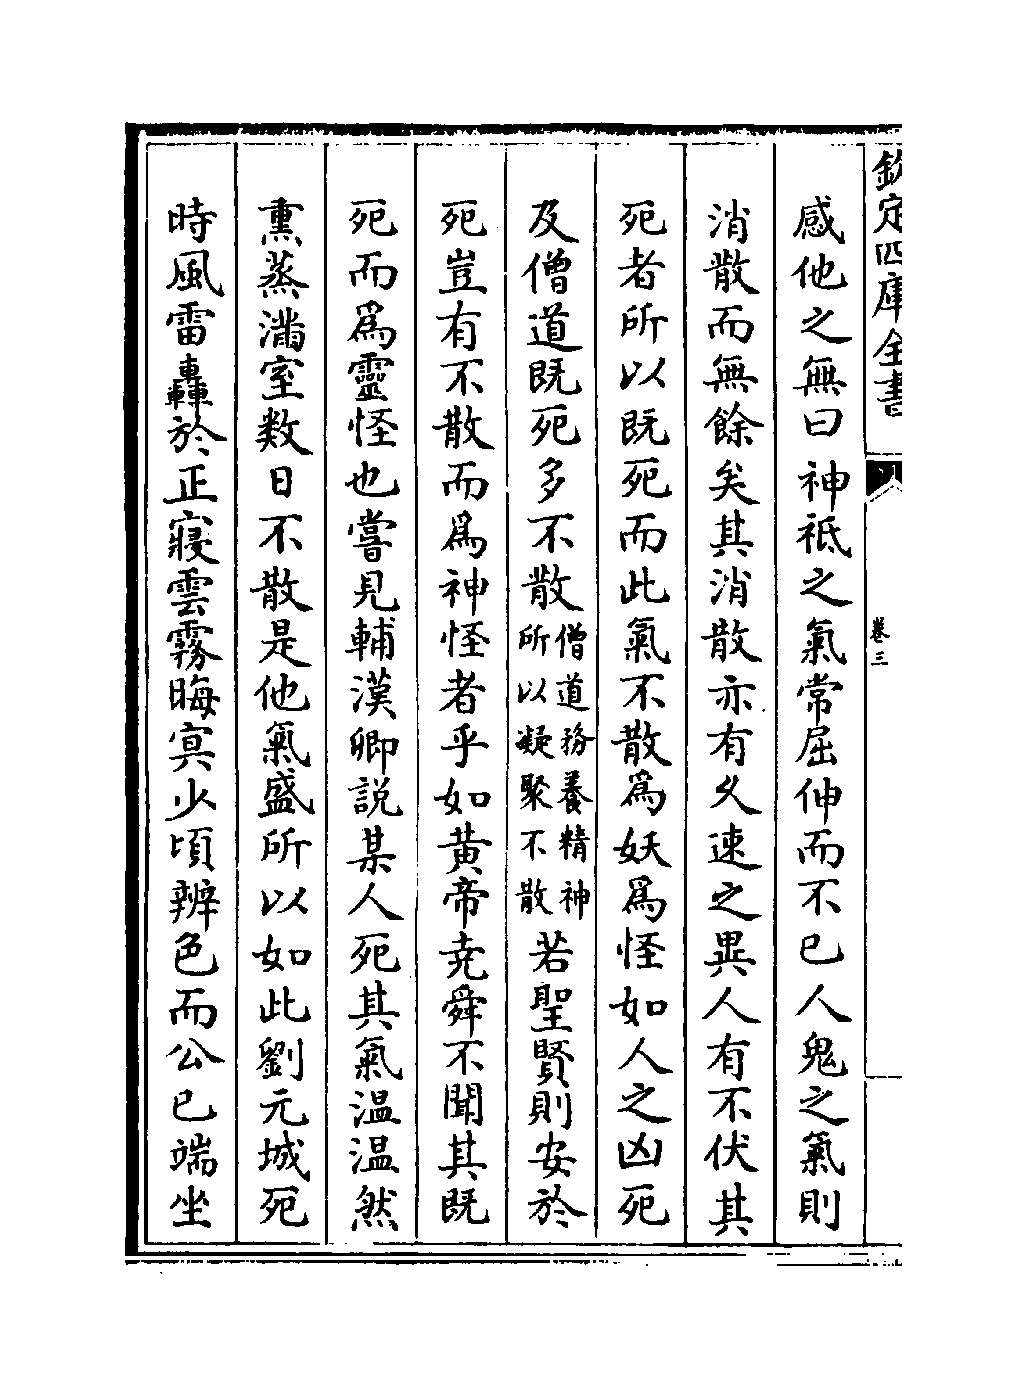 欽定四庫全書
卷三
感他之無曰神祗之氣常屈伸而不已人鬼之氣則
消散而無餘矣其消散亦有久速之異人有不伏其
死者所以既死而此氣不散為妖為怪如人之凶死
及僧道既死多不散僧道務養精神所以凝聚不散若聖賢則安於
死豈有不散而為神怪者乎如黃帝堯舜不聞其既
死而為靈怪也嘗見輔漢卿說某人死其氣温温然
熏蒸滿室数日不散是他氣盛所以如此劉元城死
時風雷轟於正寢雲霧晦冥少頃辨色而公已端坐